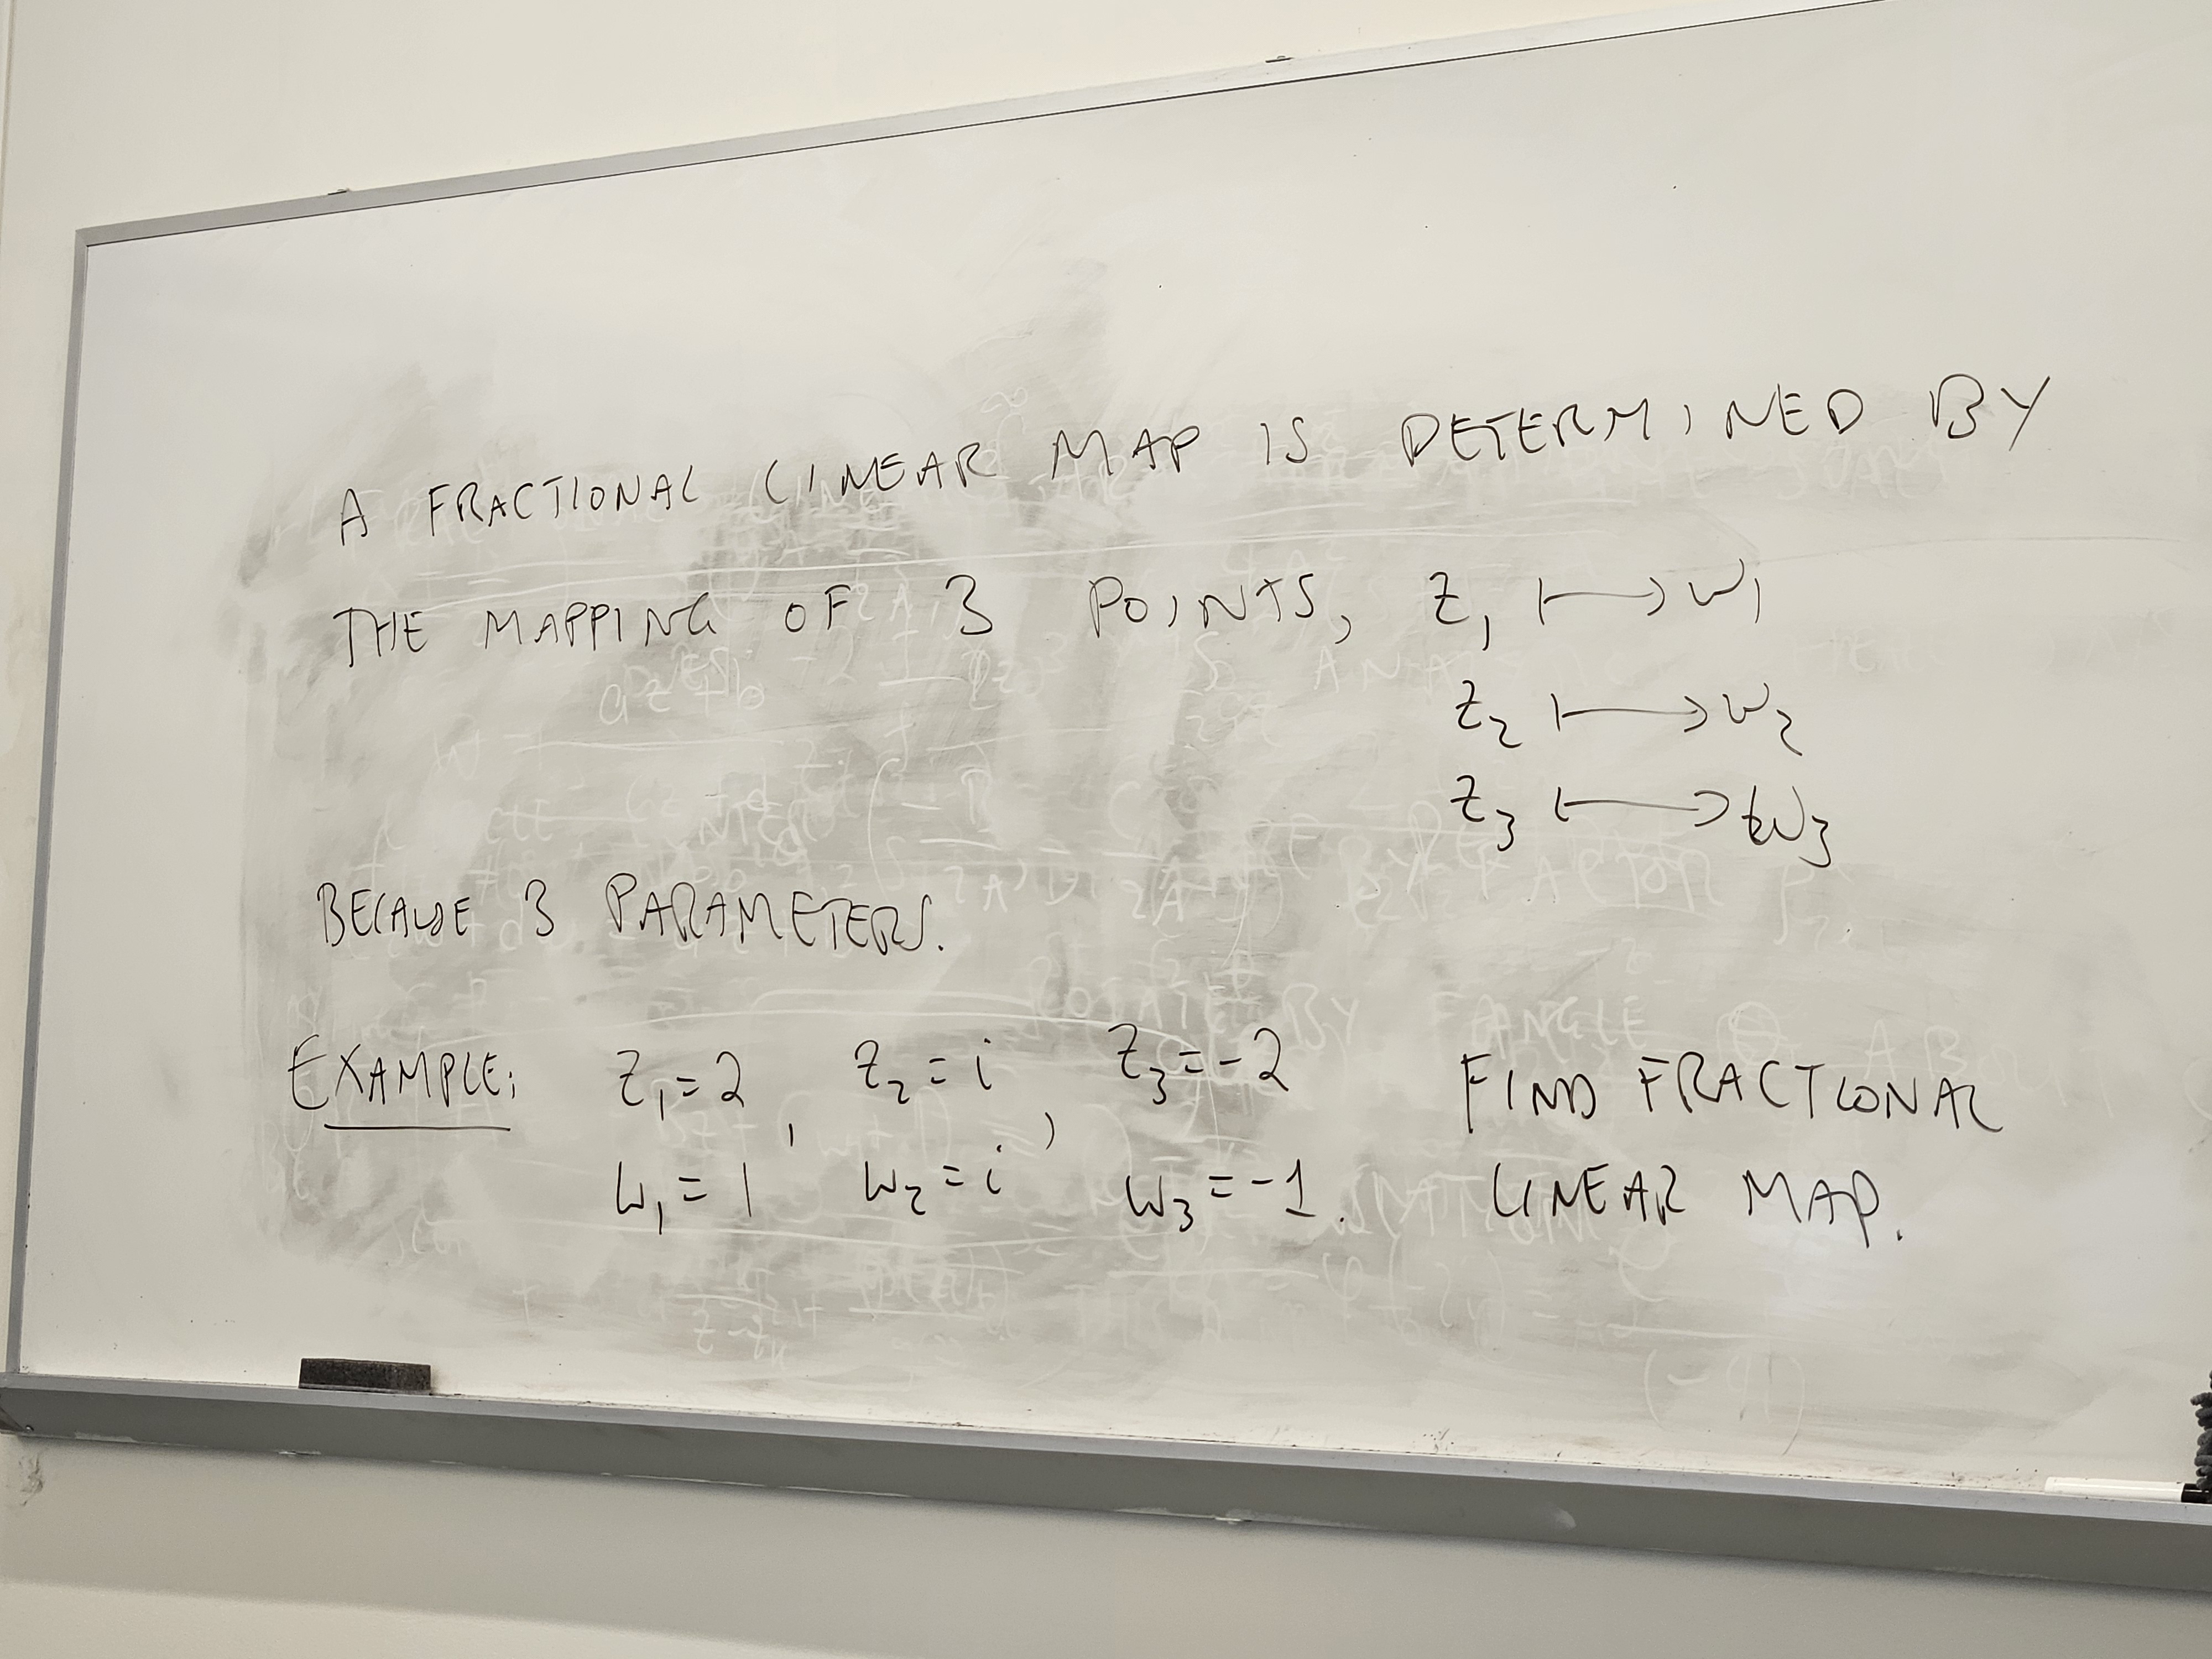 A FRACTIONAL LINEAR MAP IS DETERMINED BY
THE MAPPING OF 3 POINTS, z₁ ↦ w₁
z₂ ↦ w₂
z₃ ↦ w₃
BECAUSE 3 PARAMETERS.
EXAMPLE: z₁ = 2, z₂ = i, z₃ = -2 FIND FRACTIONAL
w₁ = 1 w₂ = i w₃ = -1. LINEAR MAP.